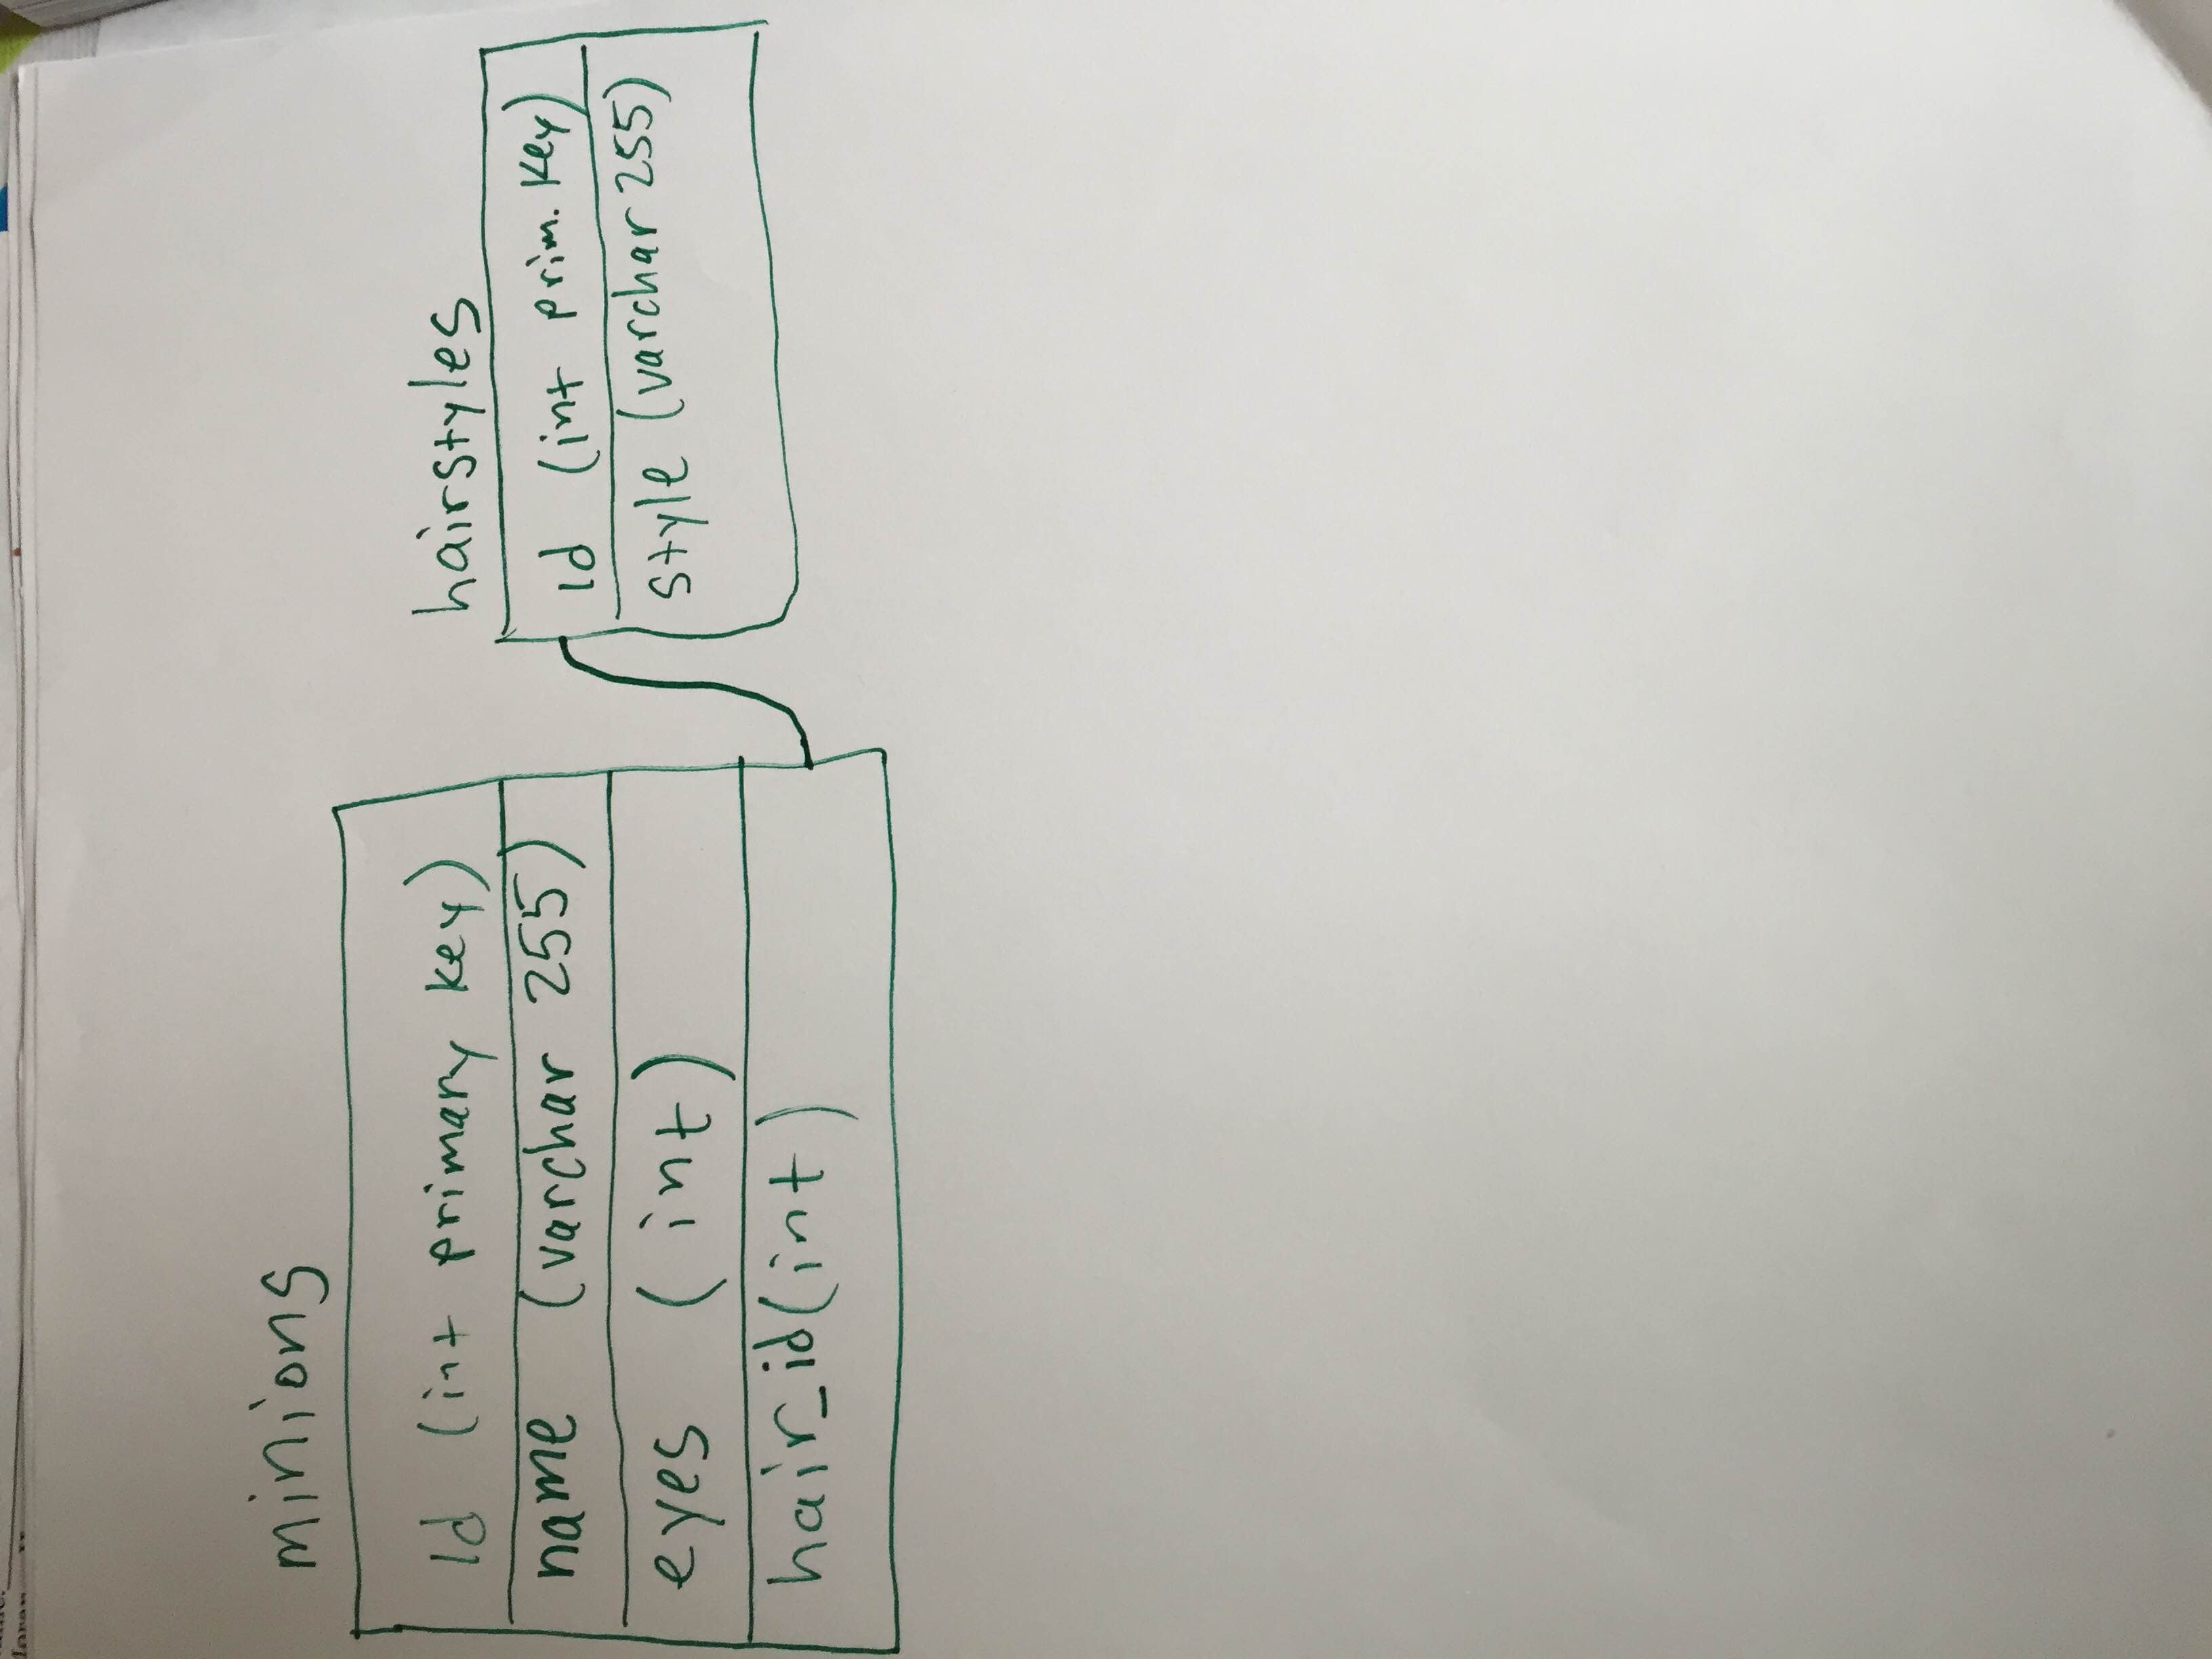 minions
id (int primary key)
name (varchar 255)
eyes (int)
hair_id (int)
hairstyles
id (int prim. key)
style (varchar 255)